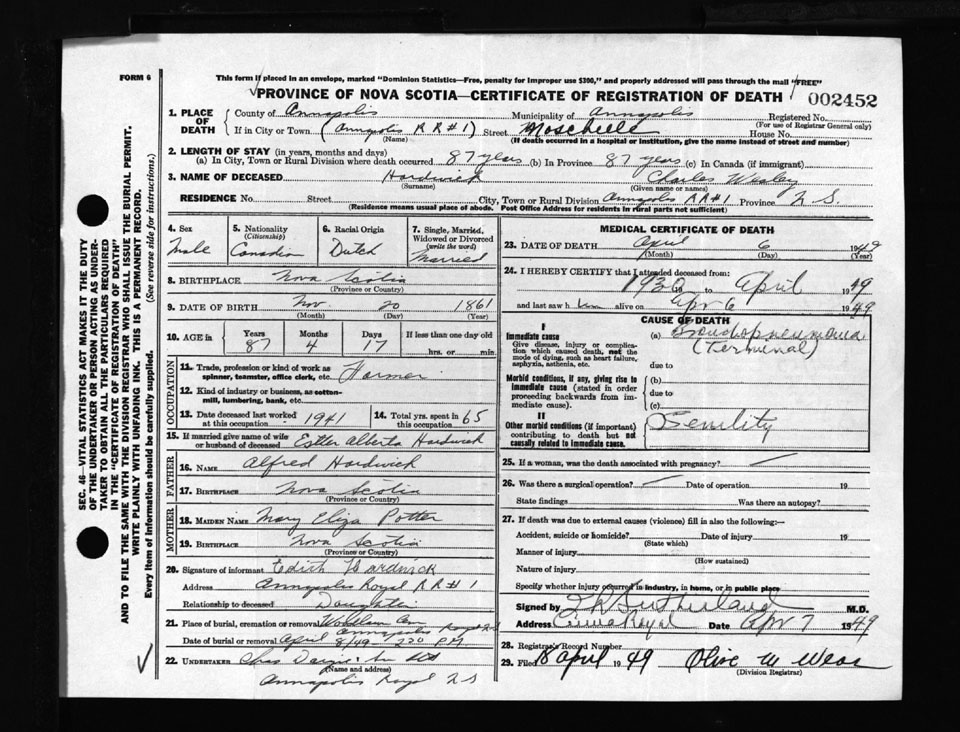 FORM 6
This form if placed in an envelope, marked "Dominion Statistics—Free, penalty for improper use $300," and properly addressed will pass through the mail "FREE"
PROVINCE OF NOVA SCOTIA—CERTIFICATE OF REGISTRATION OF DEATH
002452
SEC. 46—VITAL STATISTICS ACT MAKES IT THE DUTY
OF THE UNDERTAKER OR PERSON ACTING AS UNDER-
TAKER TO OBTAIN ALL THE PARTICULARS REQUIRED
IN THE "CERTIFICATE OF REGISTRATION OF DEATH"
AND TO FILE THE SAME WITH THE DIVISION REGISTRAR WHO SHALL ISSUE THE BURIAL PERMIT.
WRITE PLAINLY WITH UNFADING INK. THIS IS A PERMANENT RECORD.
Every item of information should be carefully supplied. (See reverse side for instructions.)
1. PLACE OF DEATH
County of Annapolis Municipality of Annapolis Registered No.
(For use of Registrar General only)
If in City or Town (Annapolis RR#1) Street Moschelle House No.
(Name) (If death occurred in a hospital or institution, give the name instead of street and number)
2. LENGTH OF STAY (in years, months and days)
(a) In City, Town or Rural Division where death occurred 87 years (b) In Province 87 years (c) In Canada (if immigrant)
3. NAME OF DECEASED Hardwick Charles Wesley
(Surname) (Given name or names)
RESIDENCE No. Street City, Town or Rural Division Annapolis RR#1 Province N.S.
(Residence means usual place of abode. Post Office Address for residents in rural parts not sufficient)
4. Sex Male
5. Nationality (Citizenship) Canadian
6. Racial Origin Dutch
7. Single, Married, Widowed or Divorced (write the word) Married
8. BIRTHPLACE Nova Scotia
(Province or Country)
9. DATE OF BIRTH Nov 20 1861
(Month) (Day) (Year)
10. AGE in Years 87 Months 4 Days 17 If less than one day old hrs. or min.
OCCUPATION
11. Trade, profession or kind of work as spinner, teamster, office clerk, etc. Farmer
12. Kind of industry or business, as cotton-mill, lumbering, bank, etc.
13. Date deceased last worked at this occupation 1941
14. Total yrs. spent in this occupation 65
15. If married give name of wife or husband of deceased Esther Alberta Hardwick
FATHER
16. NAME Alfred Hardwick
17. BIRTHPLACE Nova Scotia
(Province or Country)
MOTHER
18. MAIDEN NAME Mary Eliza Potter
19. BIRTHPLACE Nova Scotia
(Province or Country)
20. Signature of informant Edith Hardwick
Address Annapolis Royal RR#1
Relationship to deceased Daughter
21. Place of burial, cremation or removal Annapolis Royal N.S
Date of burial or removal April 8/49 - 2 30 PM
22. UNDERTAKER Chas
(Name and address)
Annapolis Royal N.S
MEDICAL CERTIFICATE OF DEATH
23. DATE OF DEATH April 6 1949
(Month) (Day) (Year)
24. I HEREBY CERTIFY that I attended deceased from:
to April 1949
and last saw him alive on Apr 6 1949
CAUSE OF DEATH
I
Immediate cause
Give disease, injury or complication which caused death, not the mode of dying, such as heart failure, asphyxia, asthenia, etc.
(a) Bronchopneumonia
(Terminal)
due to
Morbid conditions, if any, giving rise to immediate cause (stated in order proceeding backwards from immediate cause).
(b)
due to
(c)
II
Other morbid conditions (if important) contributing to death but not causally related to immediate cause.
Senility
25. If a woman, was the death associated with pregnancy?
26. Was there a surgical operation? Date of operation 19
State findings Was there an autopsy?
27. If death was due to external causes (violence) fill in also the following:—
Accident, suicide or homicide? Date of injury 19
(State which)
Manner of injury
(How sustained)
Nature of injury
Specify whether injury occurred in industry, in home, or in public place
Signed by Sutherland M.D.
Address Royal Date Apr 7 1949
28. Registrar's Record Number
29. Filed 8 April 1949 Olive M
(Division Registrar)